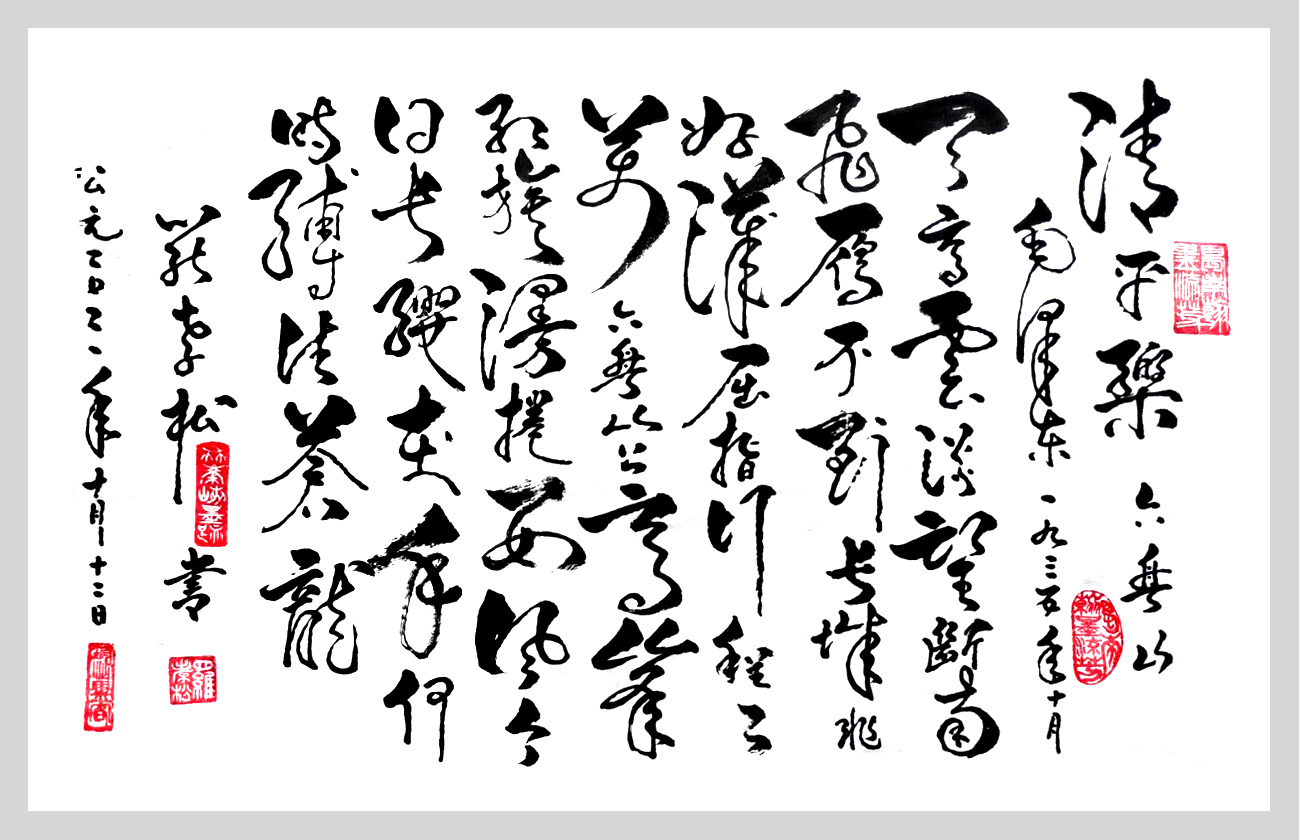 清平樂 六盤山
毛澤東 一九三五年十月
天高雲淡望斷南
飛雁不到長城非
好漢屈指行程二
萬六盤山上高峰
紅旗漫捲西風今
日長纓在手何
時縛住蒼龍
羅 松 書
公元二〇二一年十月十二日